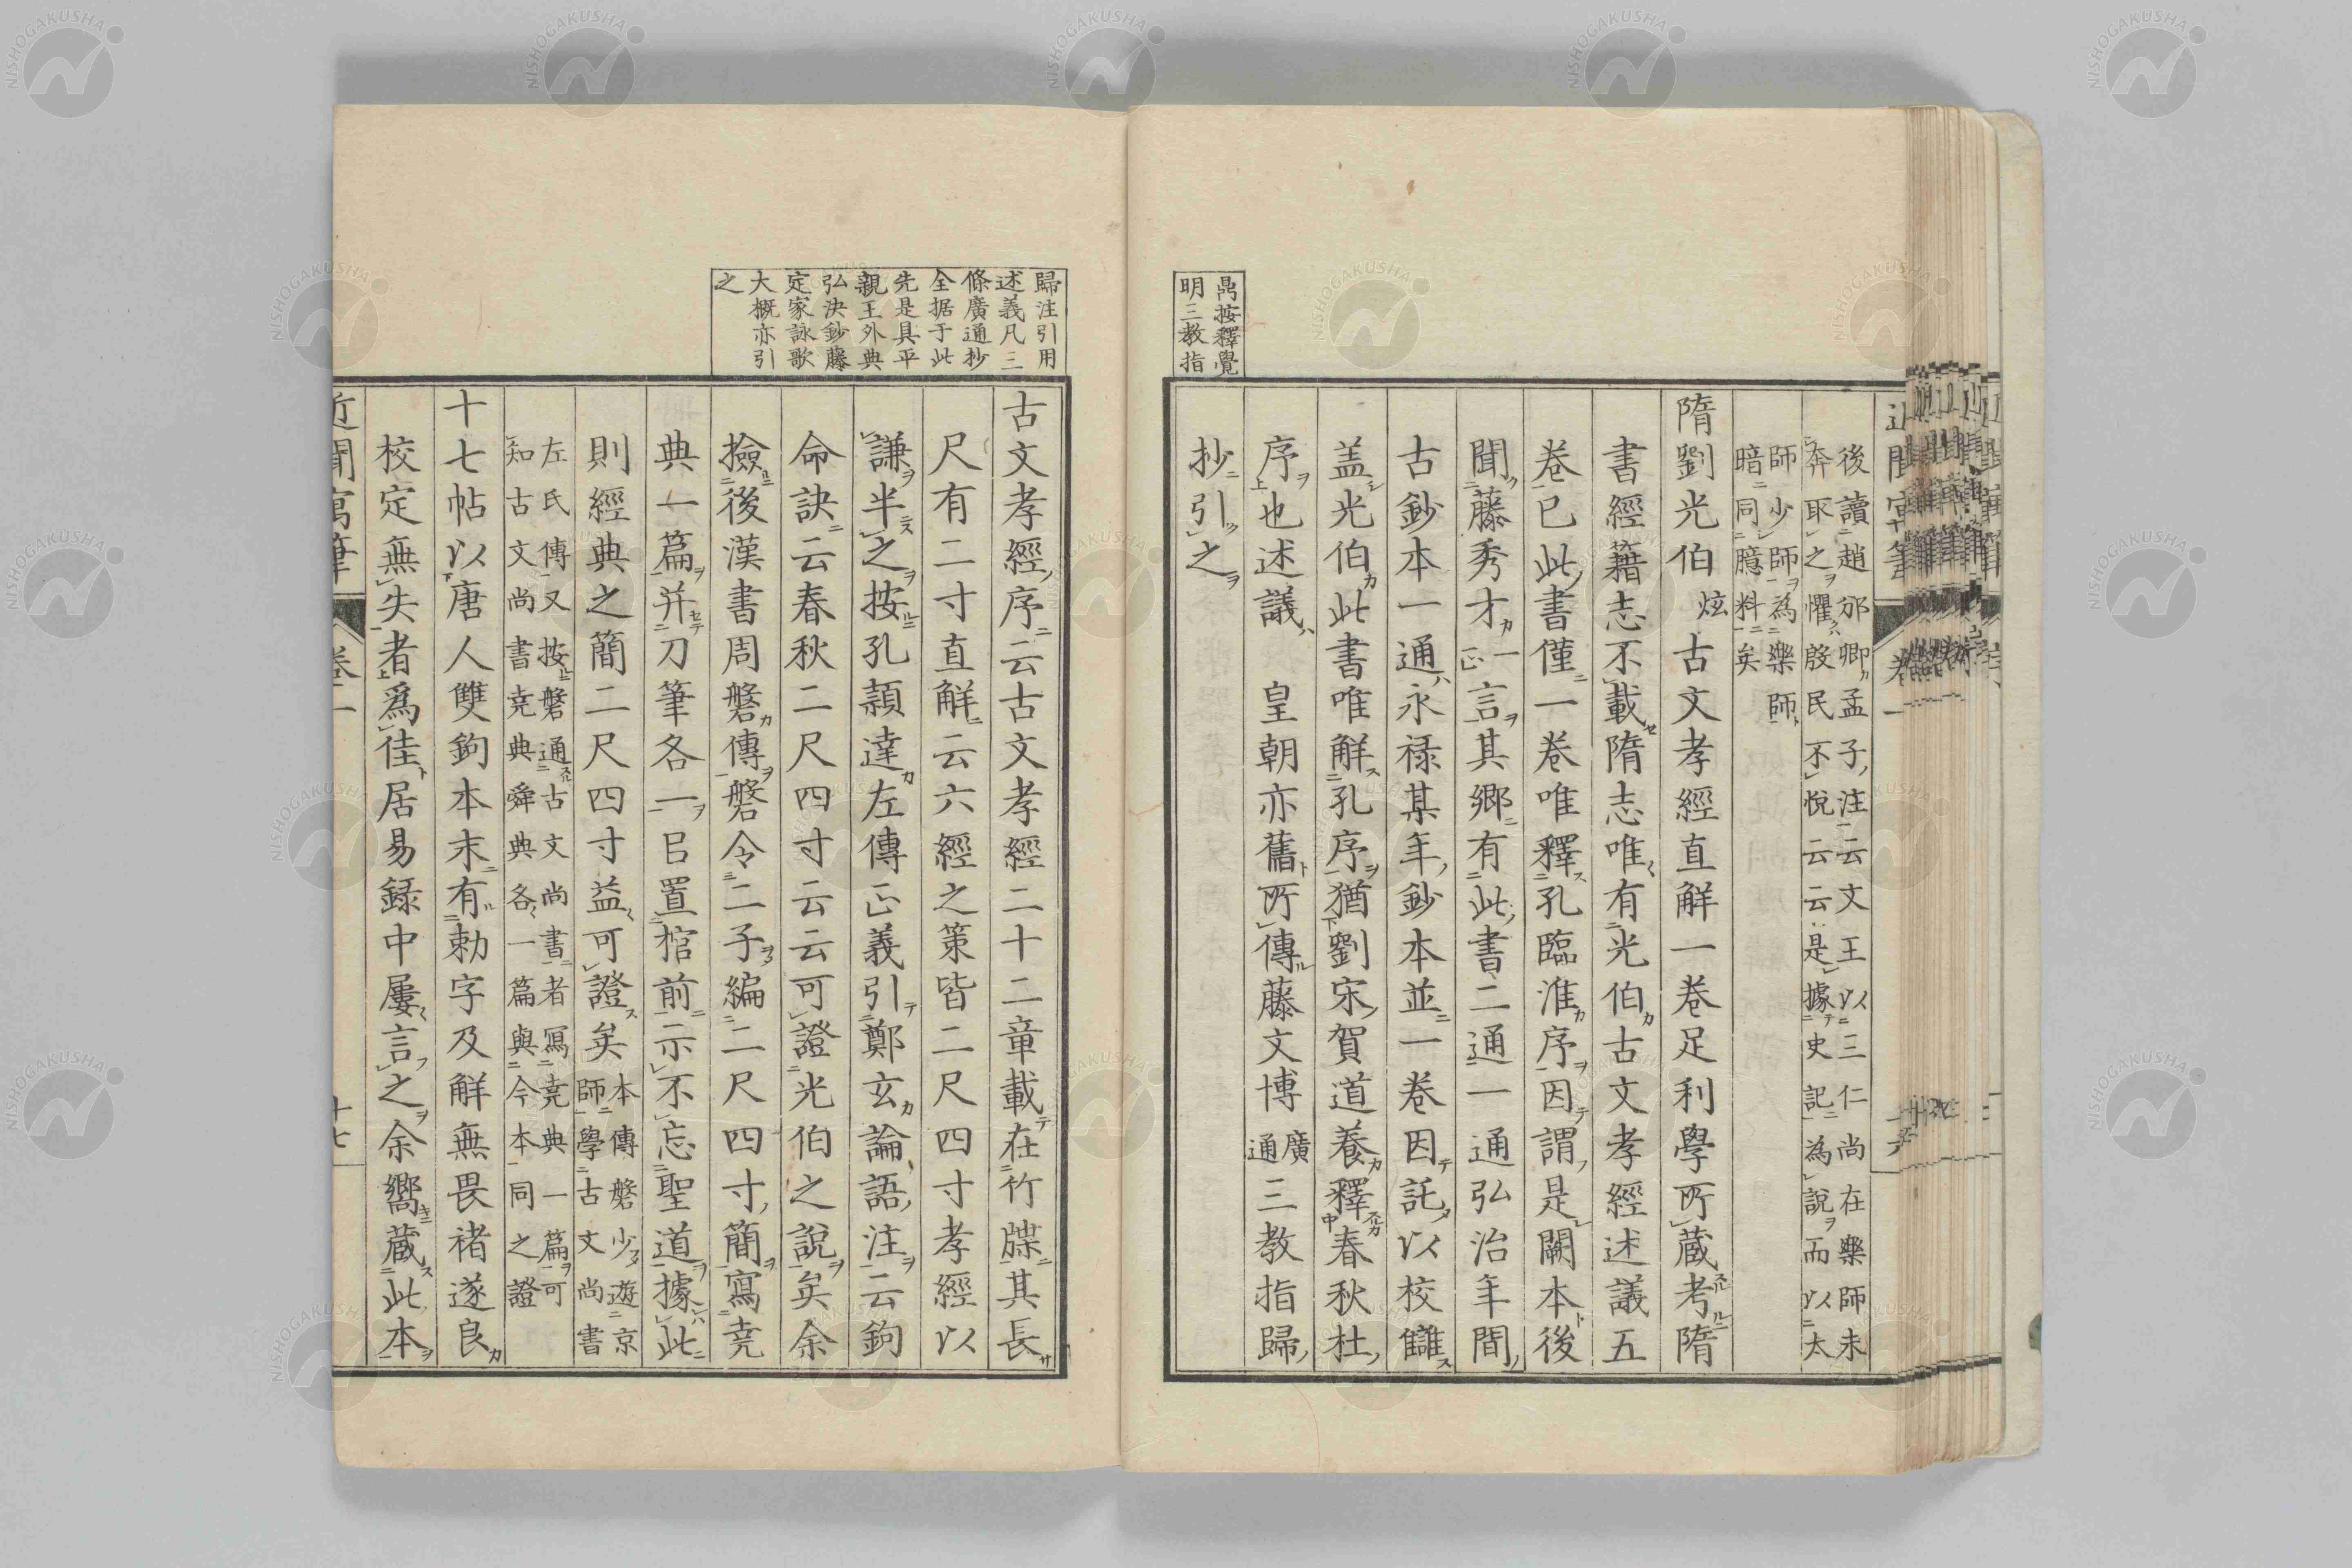 後讀趙邠卿孟子注云文王以三仁尚在樂師未
奔取之懼殷民不悅云云是據史記為說而以太
師少師為樂師
暗同臆料矣
隋劉光伯炫古文孝經直解一卷足利學所蔵考隋
書經籍志不載隋志唯有光伯古文孝經述議五
卷已此書僅一卷唯釋孔臨淮序因謂是闕本後
聞藤秀才一正言其郷有此書二通一通弘治年間
古鈔本一通永禄某年鈔本並一卷因託以校讎
盖光伯此書唯解孔序猶劉宋賀道養釋春秋杜
序也述議 皇朝亦舊所傳藤文博廣通三教指歸
抄引之
禼按釋覺
明三教指
歸注引用
述義凡三
條廣通抄
全据于此
先是具平
親王外典
弘決鈔藤
定家詠歌
大概亦引
之
古文孝經序云古文孝經二十二章載在竹牒其長
尺有二寸直解云六經之策皆二尺四寸孝經以
謙半之按孔頴達左傳正義引鄭玄論語注云鉤
命訣云春秋二尺四寸云云可證光伯之說矣余
撿後漢書周磐傳磐令二子編二尺四寸簡寫尭
典一篇并刀筆各一㠯置棺前示不忘聖道據此
則經典之簡二尺四寸益可證矣本傳磐少遊京師學古文尚書
左氏傳又按磐通古文尚書者寫尭典一篇可
知古文尚書尭典舜典各一篇與今本同之證
十七帖以唐人雙鉤本末有勅字及解無畏褚遂良
校定無失者爲佳居易録中屢言之余嚮蔵此本
近聞寓筆 卷一 十七